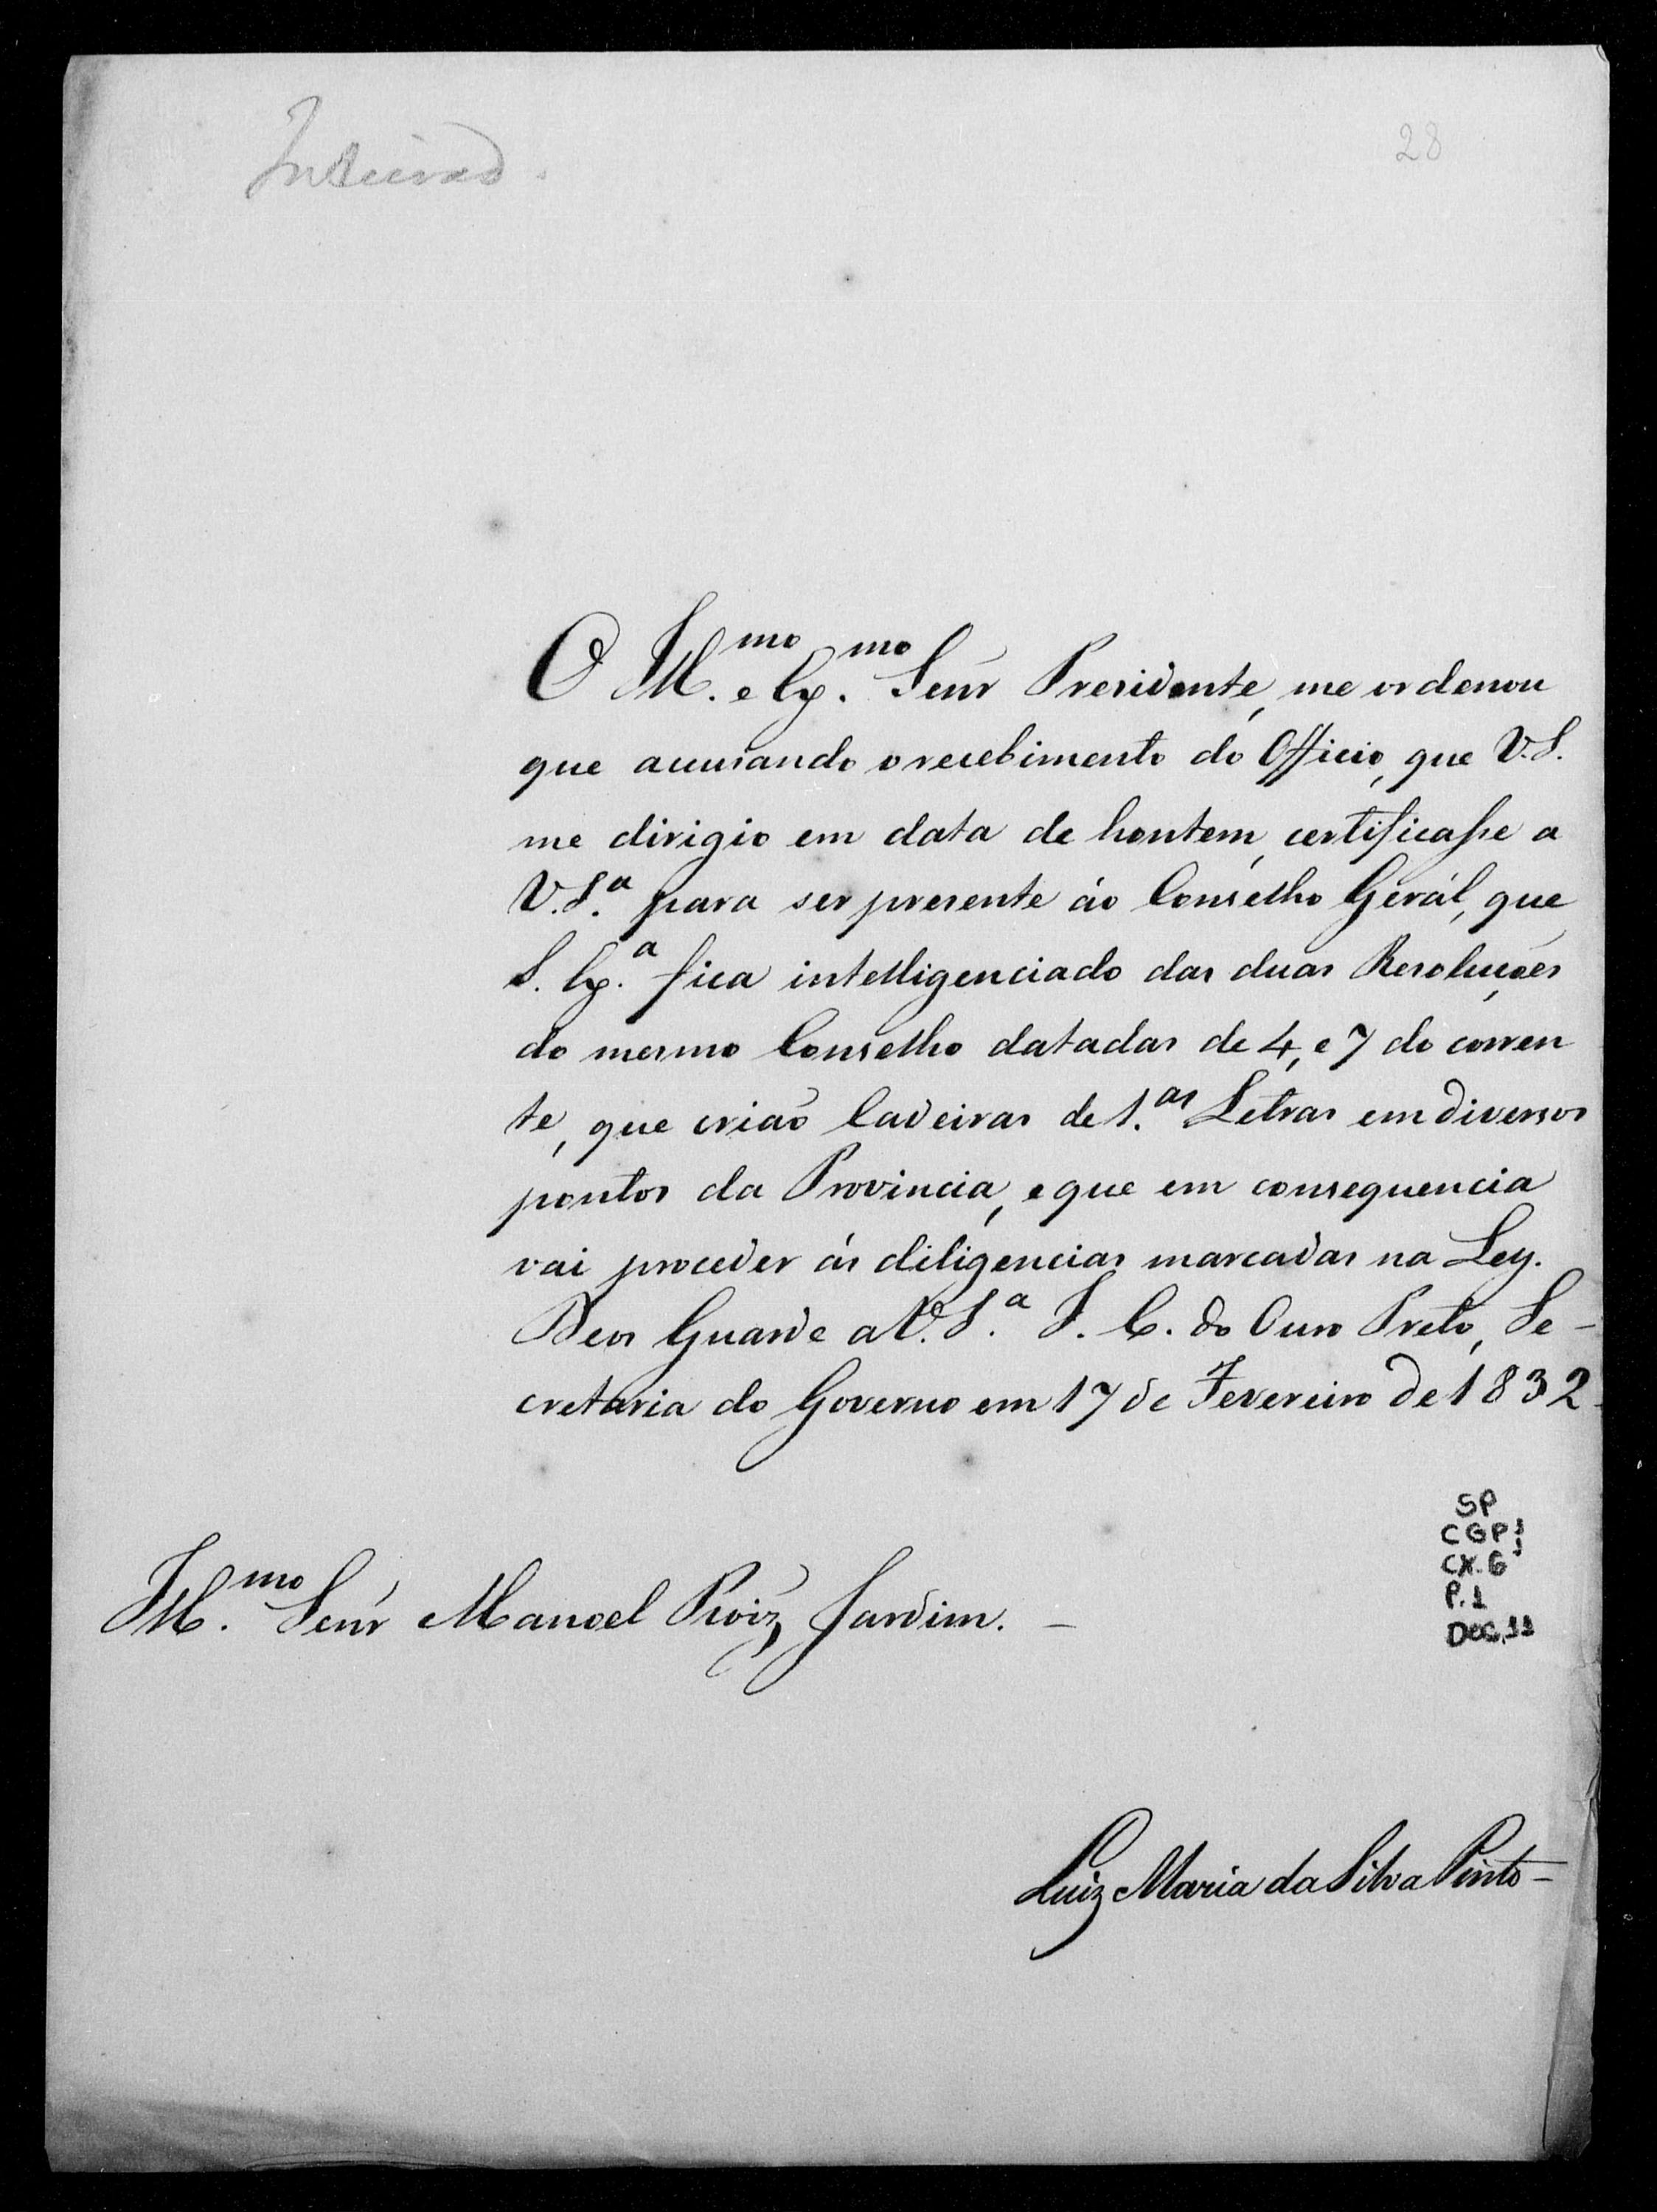 Inteirado.
28
O Ill.mo e Ex.mo Senr Presidente, me ordenou
que accusando o recebimento do Officio, que V.S.
me dirigio em data de hontem, certificasse a
V.S.a para ser presente áo Conselho Gerál, que
S. Ex.a fica intelligenciado das duas Resoluções
do mesmo Conselho datadas de 4, e 7 do corren
te, que crião Cadeiras de 1.as Letras em diversos
pontos da Provincia, e que em consequencia
vai proceder ás diligencias marcadas na Ley.
Deos Guarde a V.S.a I. C. do Ouro Preto, Se-
cretaria do Governo em 17 de Fevereiro de 1832.
SP
CGP1
CX.6
P.1
DOC.11
Ill.mo Senr Manoel Roiz Jardim. -
Luiz Maria da Silva Pinto -